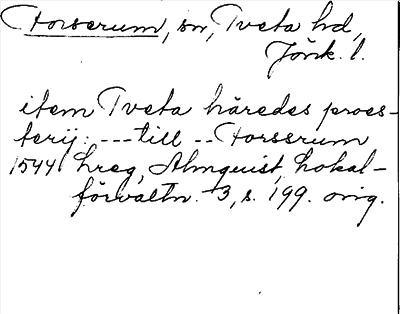 Forserum, sn, Tveta hd,
Jönk. l.
item Tveta häredes proes-
terij: --- till -- Forssrum
1544 Lreg, Almquist, Lokal-
förvaltn. 3, s. 199. orig.